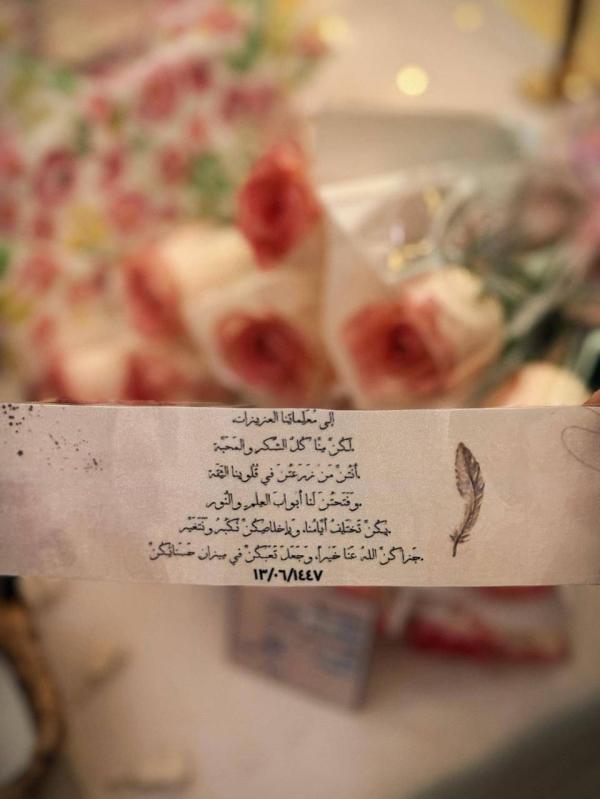 إلى مُعلماتنا العزيزات،
لَكُنّ مِنّا كُلّ الشكر والمَحَبّة.
أنتُنّ مَن زرَعتُنّ في قُلوبنا الثِقة،
وفَتَحتُنّ لَنا أبوابَ العِلمِ والنُّور.
بِكُنّ تَختَلِفُ أيّامُنا، وبإخلاصِكُنّ نَكبُرُ ونَتَغيّر.
جَزاكُنّ اللهُ عَنّا خَيراً، وَجَعَلَ تَعبَكُنّ في ميزان حَسَناتِكُنّ.
١٣/٠٦/١٤٤٧